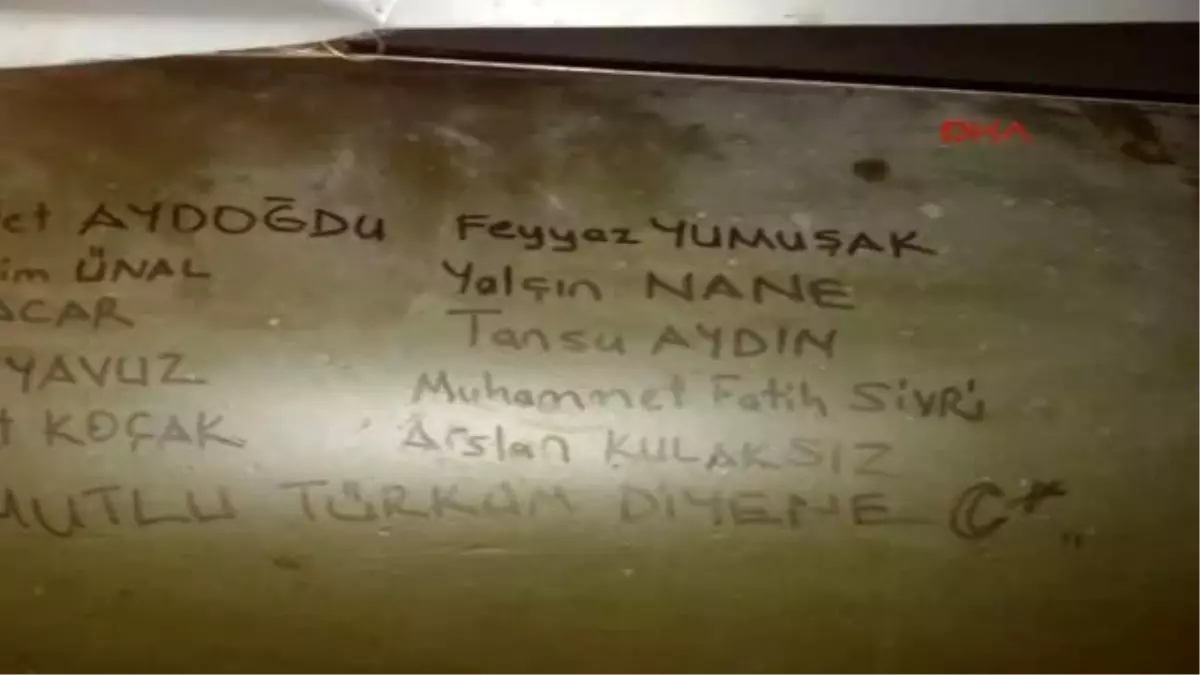 DHA
et AYDOĞDU Feyyaz YUMUŞAK
im ÜNAL Yalçın NANE
ACAR Tansu AYDIN
YAVUZ Muhammet Fatih SİVRİ
t KOÇAK Arslan KULAKSIZ
MUTLU TÜRKÜM DİYENE